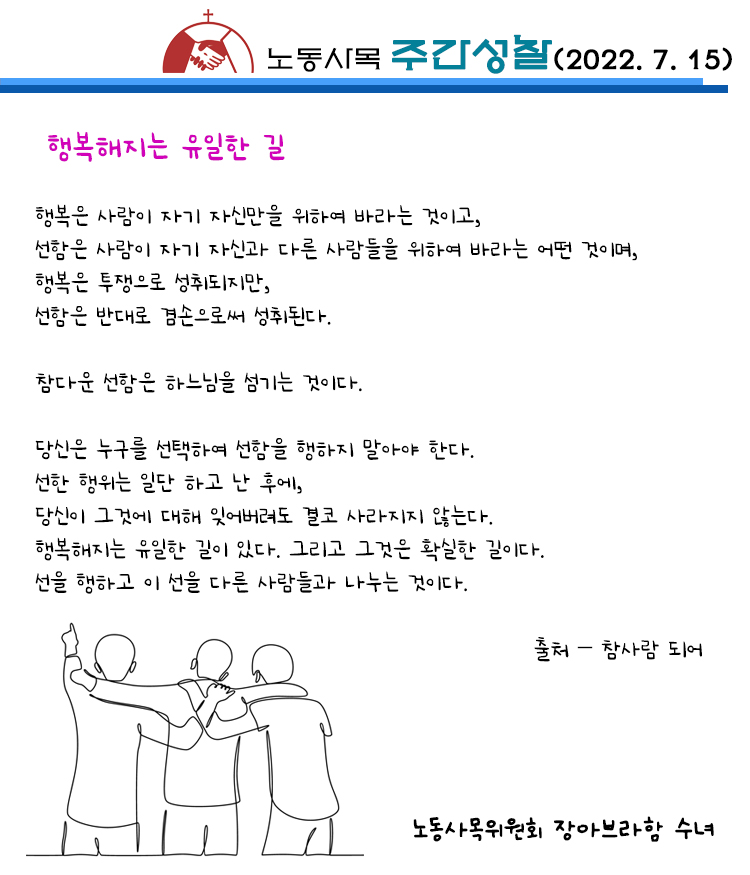 노동사목 주간성찰(2022. 7. 15)
행복해지는 유일한 길
행복은 사람이 자기 자신만을 위하여 바라는 것이고,
선함은 사람이 자기 자신과 다른 사람들을 위하여 바라는 어떤 것이며,
행복은 투쟁으로 성취되지만,
선함은 반대로 겸손으로써 성취된다.
참다운 선함은 하느님을 섬기는 것이다.
당신은 누구를 선택하여 선함을 행하지 말아야 한다.
선한 행위는 일단 하고 난 후에,
당신이 그것에 대해 잊어버려도 결코 사라지지 않는다.
행복해지는 유일한 길이 있다. 그리고 그것은 확실한 길이다.
선을 행하고 이 선을 다른 사람들과 나누는 것이다.
출처 - 참사람 되어
노동사목위원회 장아브라함 수녀